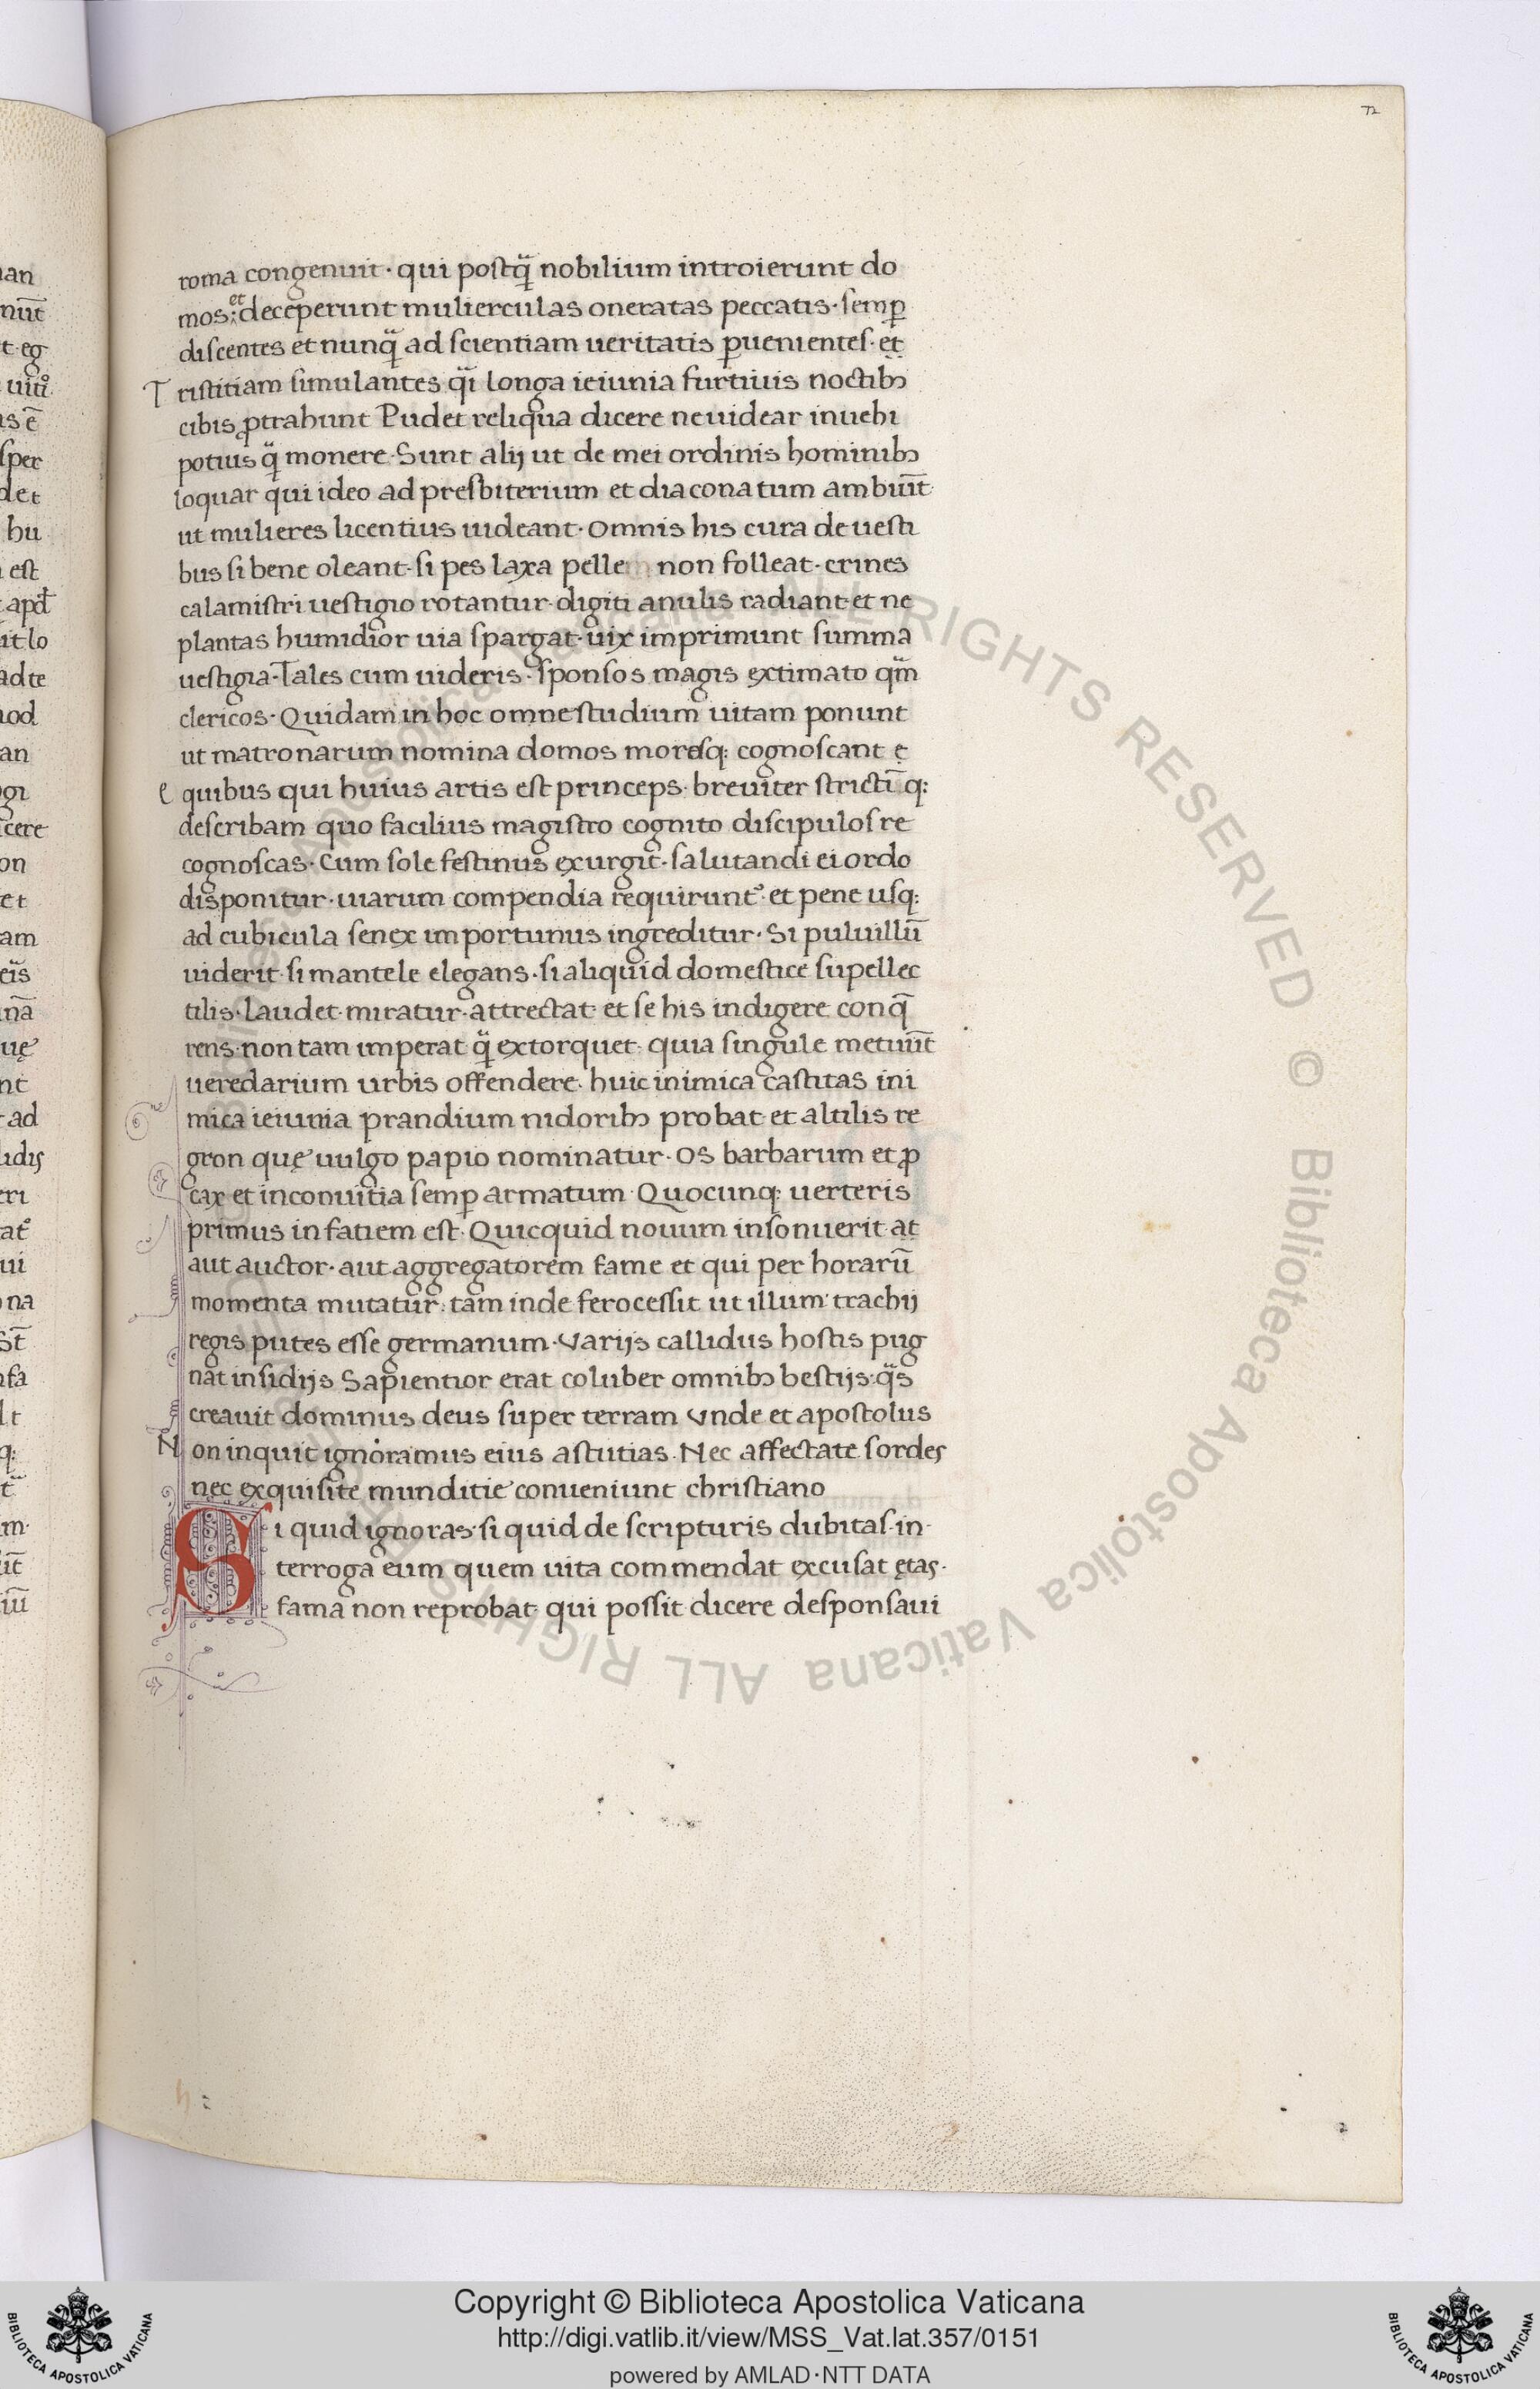 72
roma congenuit · qui postq̃ nobilium introierunt do
mos: et deceperunt mulierculas oneratas peccatis · semꝑ
discentes et nunq̃ ad scientiam ueritatis ꝑuenientes · et
T ristitiam simulantes q̃i longa ieiunia furtiuis noctibꝫ
cibis ꝓtrahunt Pudet reliqua dicere ne uidear inuehi
potius q̃ monere · Sunt alij ut de mei ordinis hominibꝫ
loquar qui ideo ad presbiterium et diaconatum ambiūt
ut mulieres licentius uideant · Omnis his cura de uesti
bus si bene oleant · si pes laxa pelle non folleat · crines
calamistri uestigio rotantur · digiti anulis radiant · et ne
plantas humidior uia spargat · uix imprimunt summa
uestigia · Tales cum uideris · sponsos magis extimato qm̃
clericos · Quidam in hoc omne studium uitam ponunt
ut matronarum nomina domos moresq: cognoscant e
e quibus qui huius artis est princeps · breuiter strictī q:
describam quo facilius magistro cognito discipulos re
cognoscas · Cum sole festinus exurgit · salutandi ei ordo
disponitur · uiarum compendia requirunt᷑ · et pene usq:
ad cubicula senex importunus ingreditur · Si puluillū
uiderit · si mantele elegans · si aliquid domestice supellec
tilis · Laudet · miratur · attrectat · et se his indigere conq̄
rens · non tam imperat q̃ extorquet · quia singule metuūt
ueredarium urbis offendere · huic inimica castitas ini
mica ieiunia prandium nidoribꝫ probat et altilis re
gron quę uulgo papio nominatur · Os barbarum et ꝓ
cax et in conuitia semꝑ armatum · Quocunq: uerteris
primus in fatiem est · Quicquid nouum insonuerit at
aut auctor · aut aggregatorem fame et qui per horarū
momenta mutatur : tam inde ferocessit ut illum trachij
regis putes esse germanum · Varijs callidus hostis pug
nat insidijs Sapientior erat coluber omnibꝫ bestijs · q̃s
creauit dominus deus super terram Vnde et apostolus
N on inquit ignoramus eius astutias · Nec affectate sordes
nec exquisite munditie conueniunt christiano
Si quid ignoras · si quid de scripturis dubitas · in
terroga eum quem uita commendat excusat ętas ·
fama non reprobat · qui possit dicere desponsaui
Copyright © Biblioteca Apostolica Vaticana
http://digi.vatlib.it/view/MSS_Vat.lat.357/0151
powered by AMLAD·NTT DATA